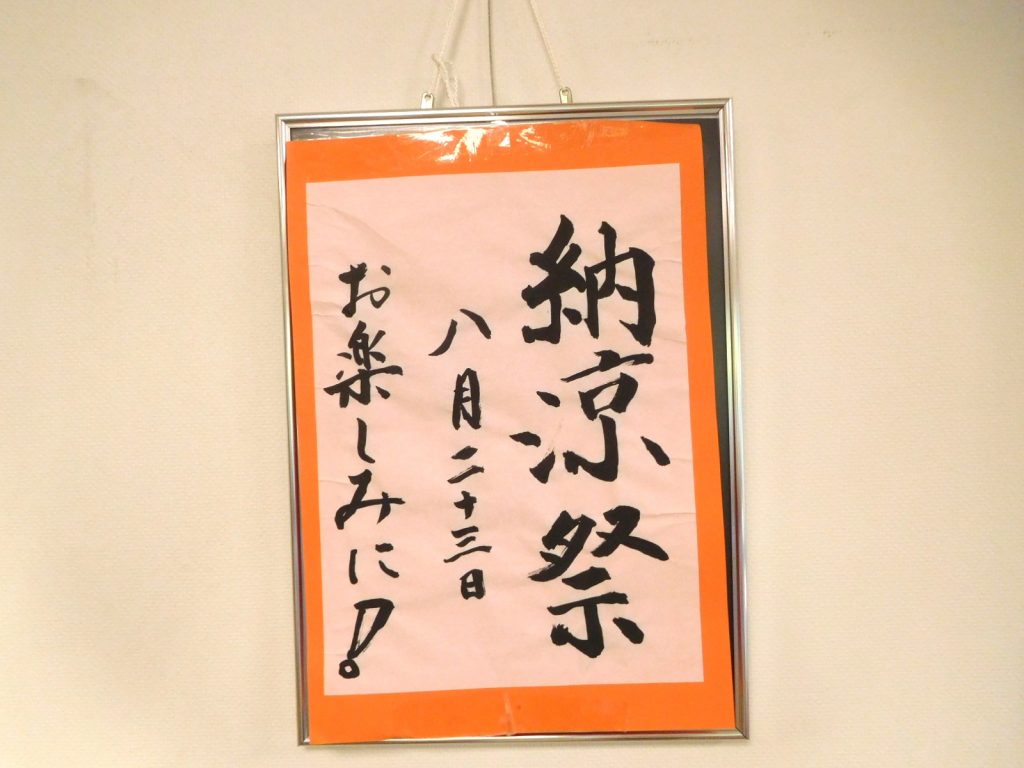 納涼祭
八月二十三日
お楽しみに!